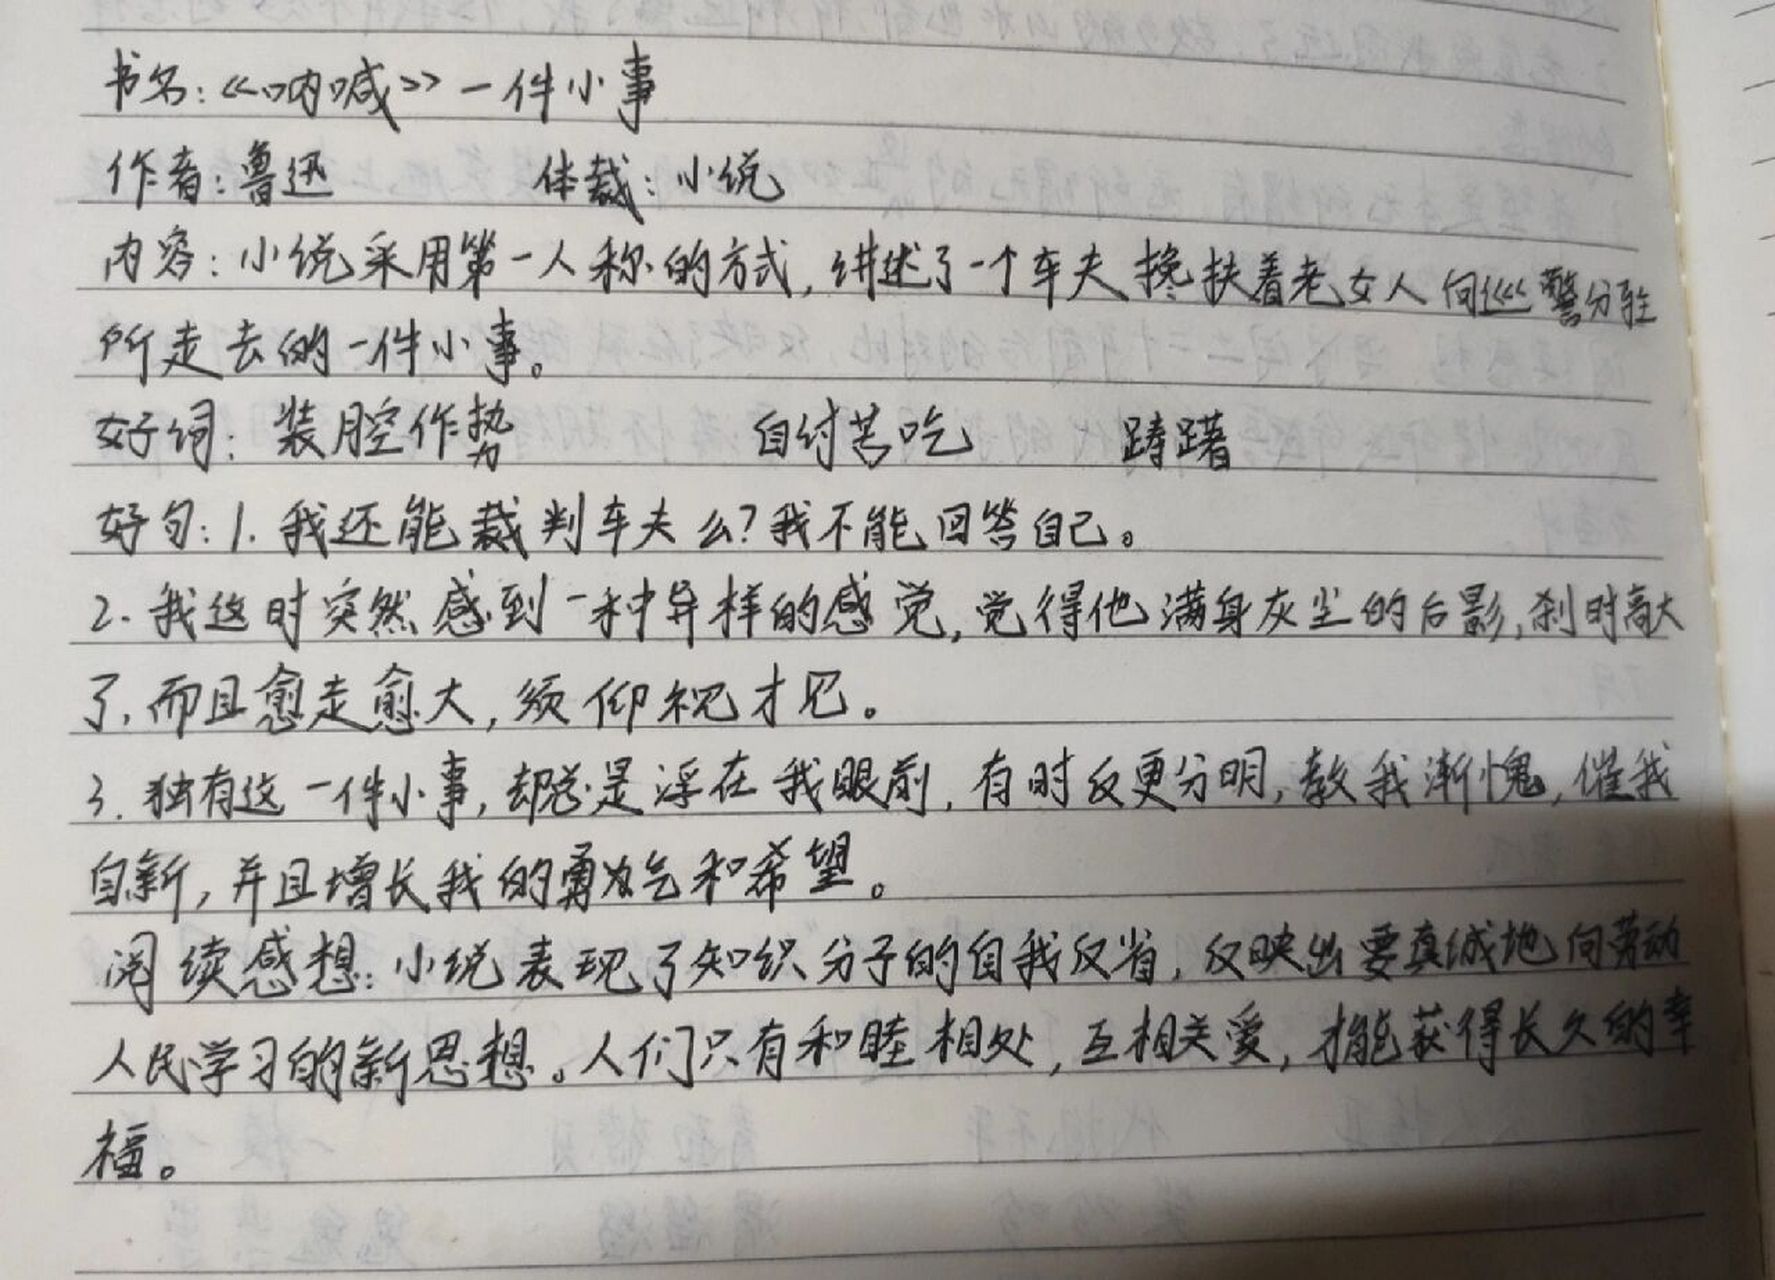 书名:《呐喊》一件小事
作者:鲁迅 体裁:小说
内容:小说采用第一人称的方式,讲述了一个车夫搀扶着老女人向巡警分驻
所走去的一件小事。
好词:装腔作势 自讨苦吃 踌躇
好句:1.我还能裁判车夫么?我不能回答自己。
2.我这时突然感到一种异样的感觉,觉得他满身灰尘的后影,刹时高大
了,而且愈走愈大,须仰视才见。
3.独有这一件小事,却总是浮在我眼前,有时反更分明,教我渐愧,催我
自新,并且增长我的勇气和希望。
阅读感想:小说表现了知识分子的自我反省,反映出要真诚地向劳动
人民学习的新思想。人们只有和睦相处,互相关爱,才能获得长久的幸
福。